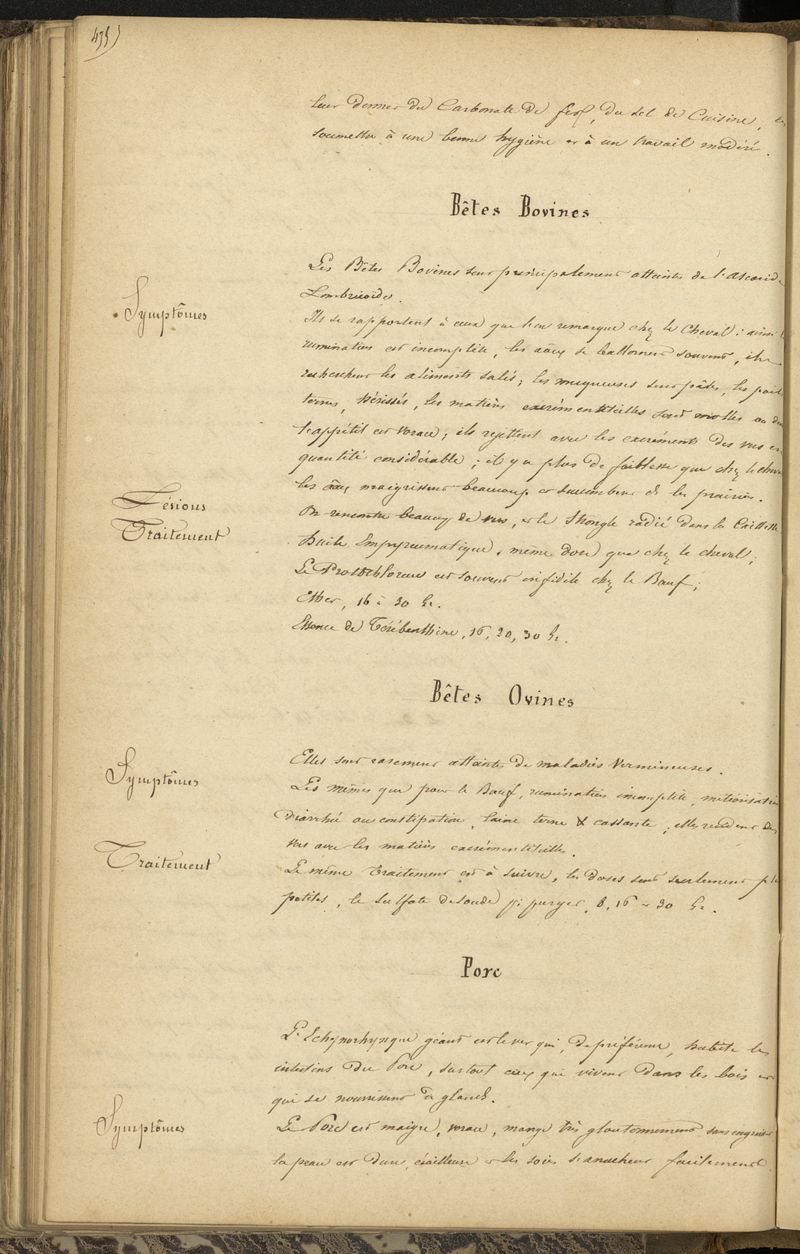 435)
leur donner du Carbonate de fer, du sel de Cuisine,
soumettre à une bonne hygiène et à un travail modéré.
Bêtes Bovines
Les Bêtes Bovines sont principalement atteintes de l'Ascaride
Lombricoïde.
Symptômes
Ils se rapportent à ceux que l'on remarque chez le Cheval: ainsi
rumination est incomplète, les se ballonnent souvent,
recherchent les aliments salés; les muqueuses sont pâles, les poils
ternes, hérissés, les matières excrémentitielles sont molles ou
l'appétit est vorace; ils rejettent avec les excréments des vers en
quantité considérable; il y a plus de faiblesse que chez le cheval
les maigrissent beaucoup et succombent ds les prairies.
Lésions
On rencontre beaucoup de vers, et le Strongle radié dans la Caillette
Traitement
Huile Empyreumatique, même dose que chez le cheval;
Le Protochlorure est souvent infidèle chez le Bœuf;
Ether, 16 à 30 Gr.
Essence de Térébenthine, 16, 20, 30 Gr.
Bêtes Ovines
Elles sont rarement atteintes de maladies Vermineuses.
Symptômes
Les mêmes que pour le Bœuf, rumination incomplète, météorisation
Diarrhée ou constipation, laine terne & cassante; elles rendent des
vers avec les matières excrémentitielles.
Traitement
Le même traitement est à suivre, les doses sont seulement plus
petites, le sulfate de soude pr purger, 8, 16 à 30 Gr.
Porc
L'Echynorhynque géant est le ver qui, de préférence, habite les
intestins du Porc, surtout ceux qui vivent dans les bois et
qui se nourrissent de glands.
Symptômes
Le Porc est maigre, vorace, mange très gloutonnement sans engraisser
la peau est dure, écailleuse et les soies s'arrachent facilement.